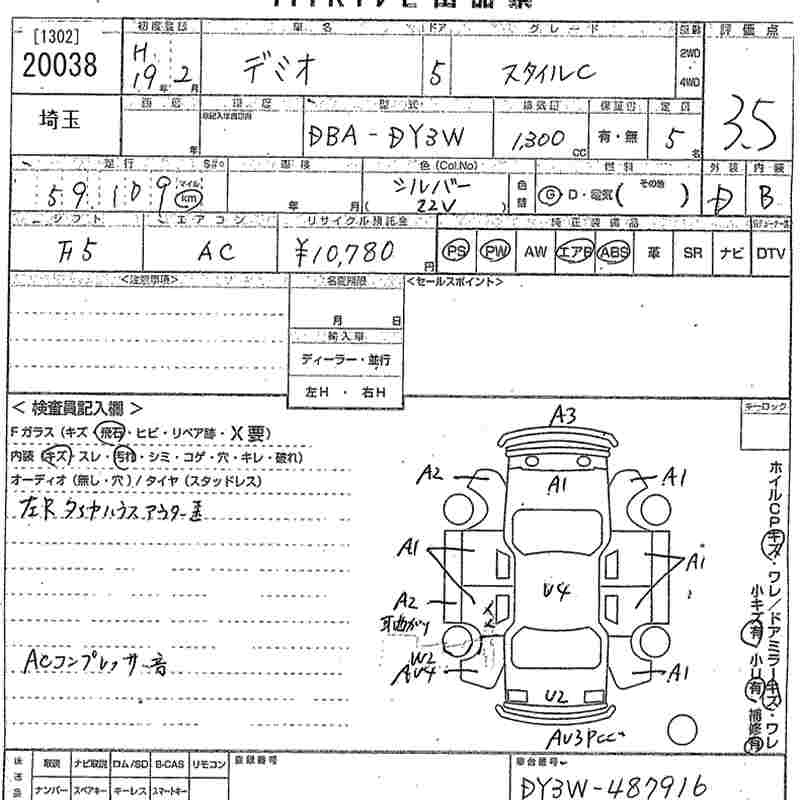 [1302]
20038
初度登録 車名 ドア グレード 評価点
H 19年 2月 デミオ 5 スタイルC 2WD 4WD 3.5
埼玉
型式 排気量 保証書 定員
DBA-DY3W 1,300cc 有・無 5名
走行 車検 色(Col.No) 燃料 外装 内装
59,109 マイル km 年 月 シルバー 22V 色替 G D・電気( その他 ) D B
シフト エアコン リサイクル預託金 純正装備品
F5 AC ¥10,780円 PS PW AW エアB ABS 革 SR ナビ DTV
<注意事項> 名変期限 <セールスポイント>
月 日
輸入車
ディーラー・並行
左H ・ 右H
< 検査員記入欄 > キーロック
Fガラス (キズ・飛石・ヒビ・リペア跡・X要)
内装 (キズ・スレ・汚れ・シミ・コゲ・穴・キレ・破れ)
オーディオ (無し・穴) / タイヤ (スタッドレス)
左Rタイヤハウスアウター
ACコンプレッサー音
A3
A2 A1 A1
A1 U4 A1
A2
耳曲がり
W2
AU4 A1
U2
AU3Pcc
ホイルCPキズ・ワレ/ドアミラーキズ・ワレ
小キズ有 小U有 補修有
後送品 取説 ナビ取説 ロム/SD B-CAS リモコン 登録番号 車台番号
ナンバー スペアキー キーレス スマートキー DY3W-487916